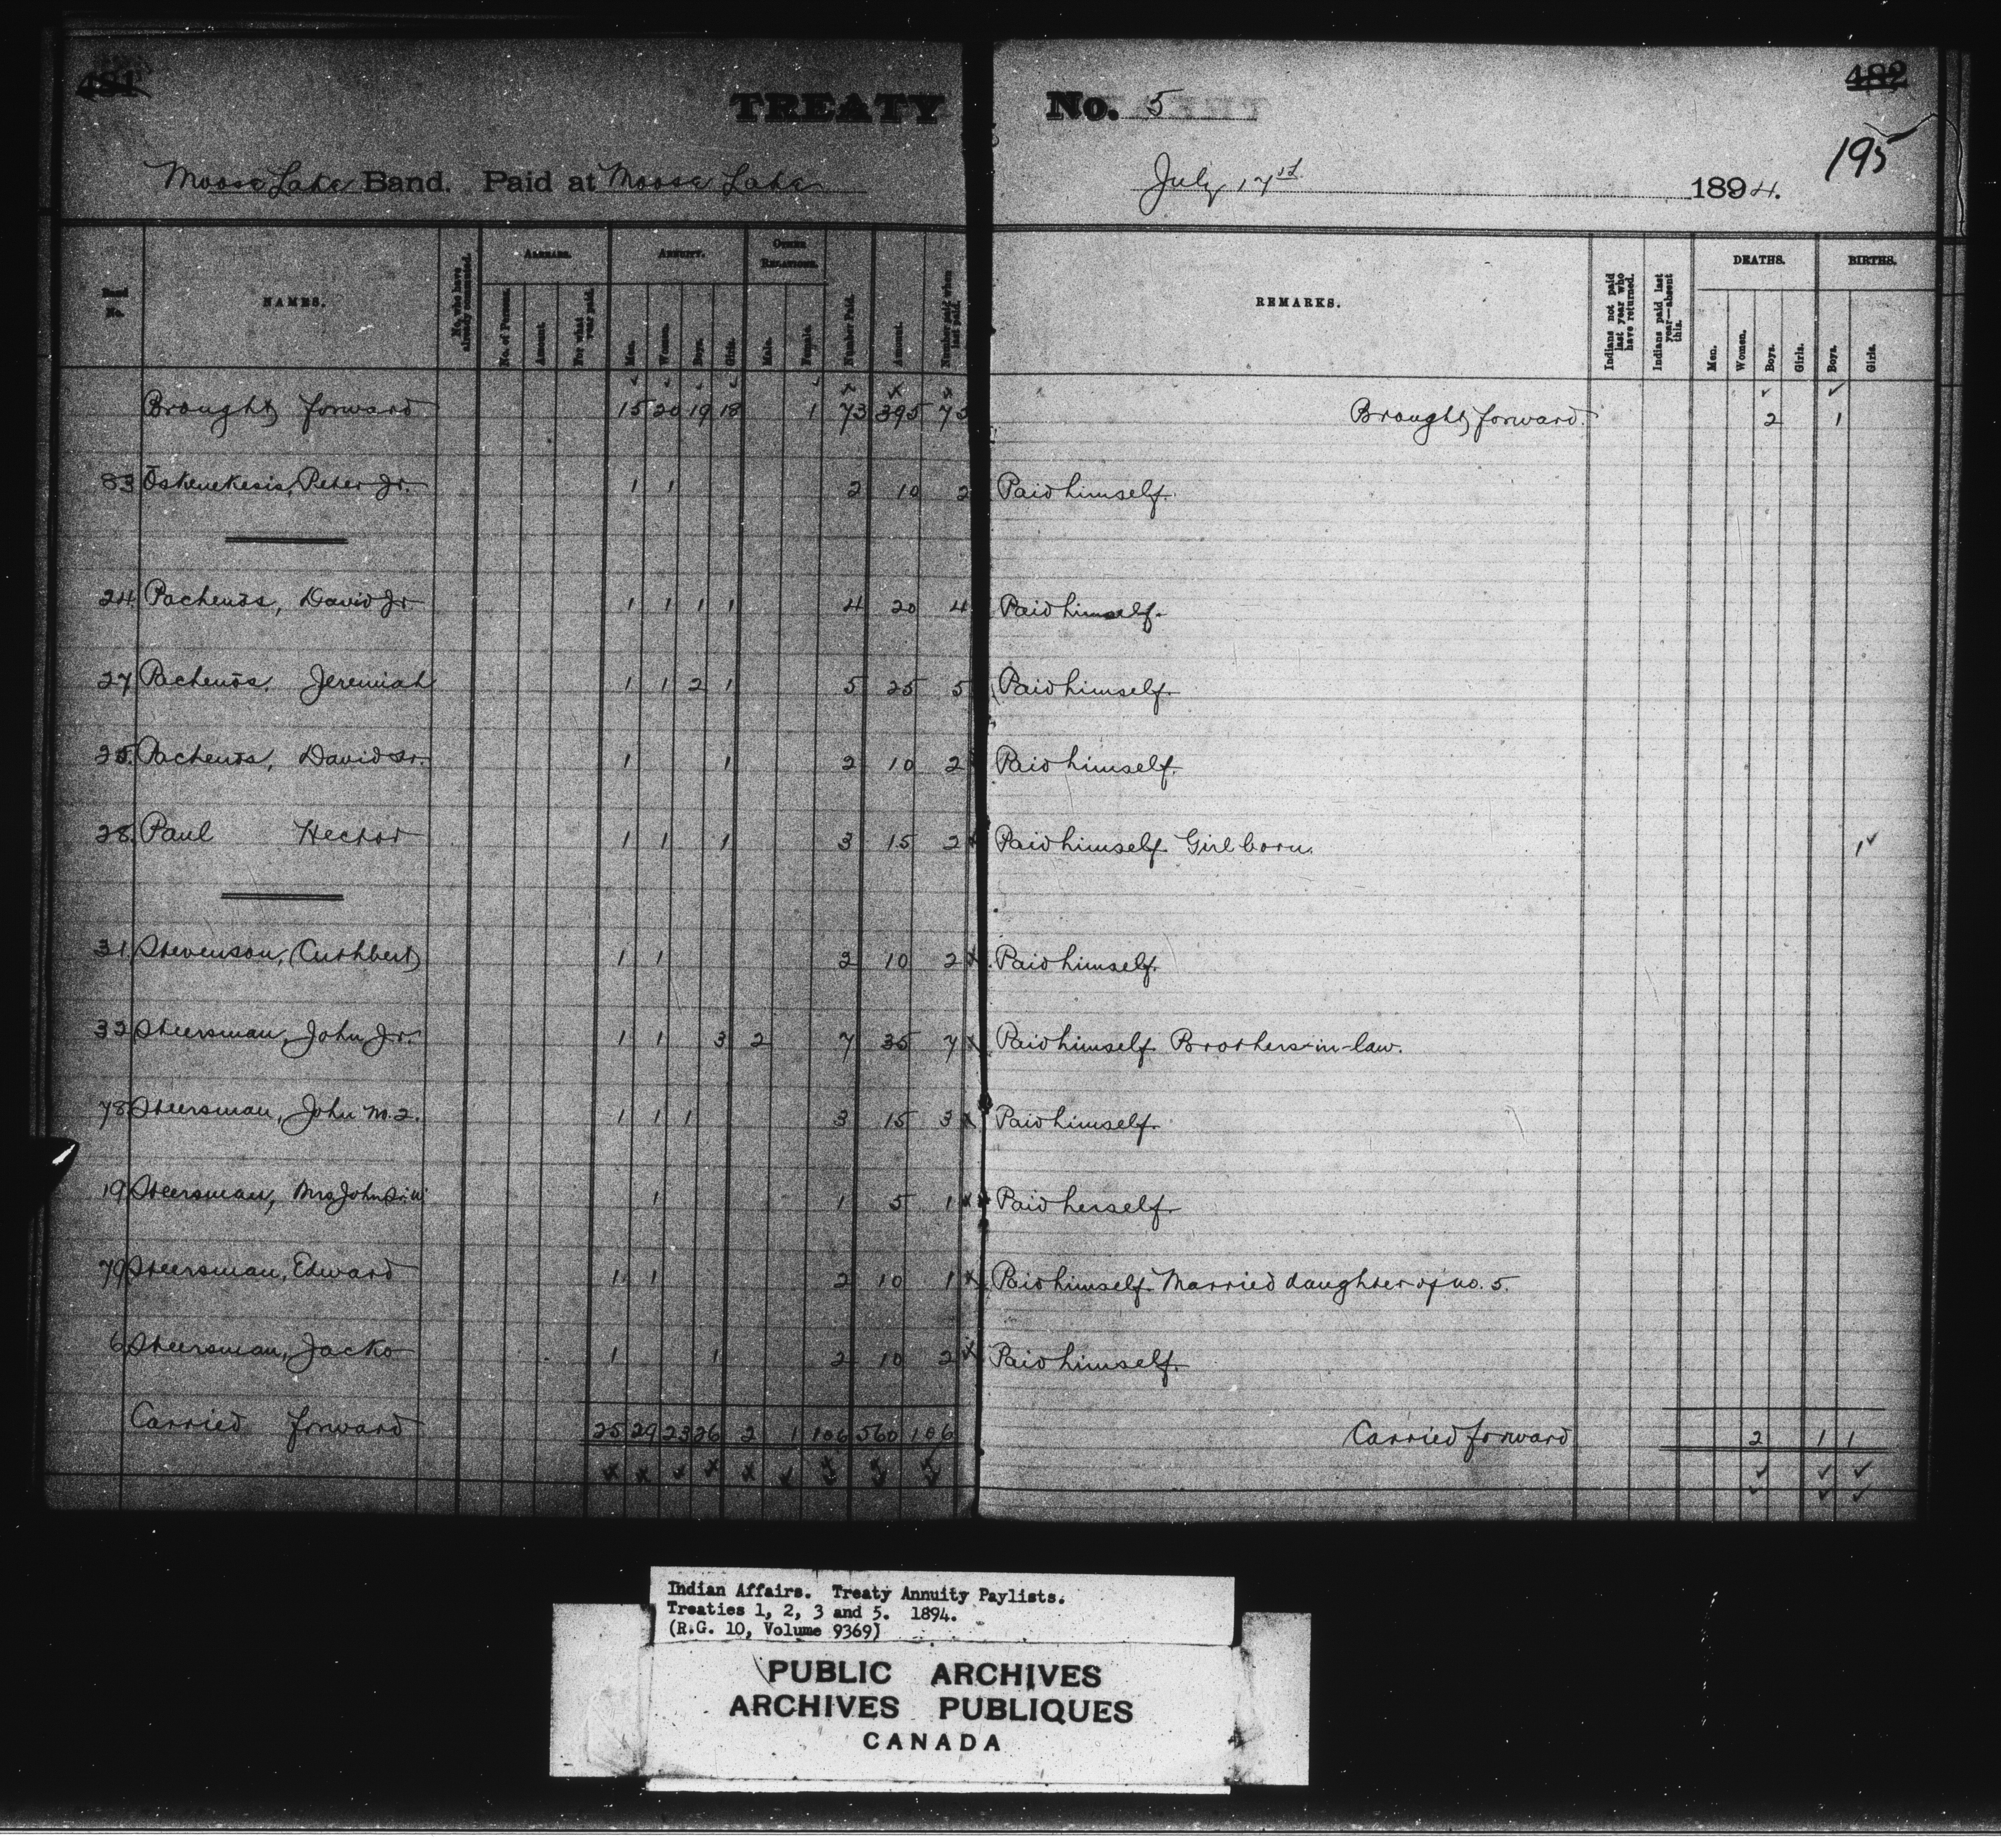 481
482
TREATY No. 5
195
Moose Lake Band. Paid at Moose Lake July 17th 1894.
No. NAMES. No. who have already commuted. ARREARS. ANNUITY. OTHER RELATIONS. Number Paid. Amount. Number paid when last paid. REMARKS. Indians not paid last year who have returned. Indians paid last year—absent this. DEATHS. BIRTHS.
No. of Persons. Amount. For what year paid. Men. Women. Boys. Girls. Male. Female. Men. Women. Boys. Girls. Boys. Girls.
Brought forward 15 20 19 18 1 73 395 73 Brought forward. 2 1
83 Oskenekesis, Peter Jr. 1 1 2 10 2 Paid himself.
24 Pachenos, David Jr 1 1 1 1 4 20 4 Paid himself.
27 Pachenos, Jeremiah 1 1 2 1 5 25 5 Paid himself.
25 Pachenos, David Sr. 1 1 2 10 2 Paid himself.
28 Paul Hector 1 1 1 3 15 2 Paid himself. Girl born. 1
31 Stevenson, (Cuthbert) 1 1 2 10 2 Paid himself.
32 Steersman, John Jr. 1 1 3 2 7 35 7 Paid himself. Brothers-in-law.
78 Steersman, John No. 2. 1 1 1 3 15 3 Paid himself.
19 Steersman, Mrs John Sr. W 1 1 5 1 Paid herself.
79 Steersman, Edward 1 1 2 10 1 Paid himself. Married daughter of no. 5.
6 Steersman, Jacko 1 1 2 10 2 Paid himself.
Carried forward 25 29 23 26 2 1 106 560 106 Carried forward 2 1 1
Indian Affairs. Treaty Annuity Paylists.
Treaties 1, 2, 3 and 5. 1894.
(R.G. 10, Volume 9369)
PUBLIC ARCHIVES
ARCHIVES PUBLIQUES
CANADA